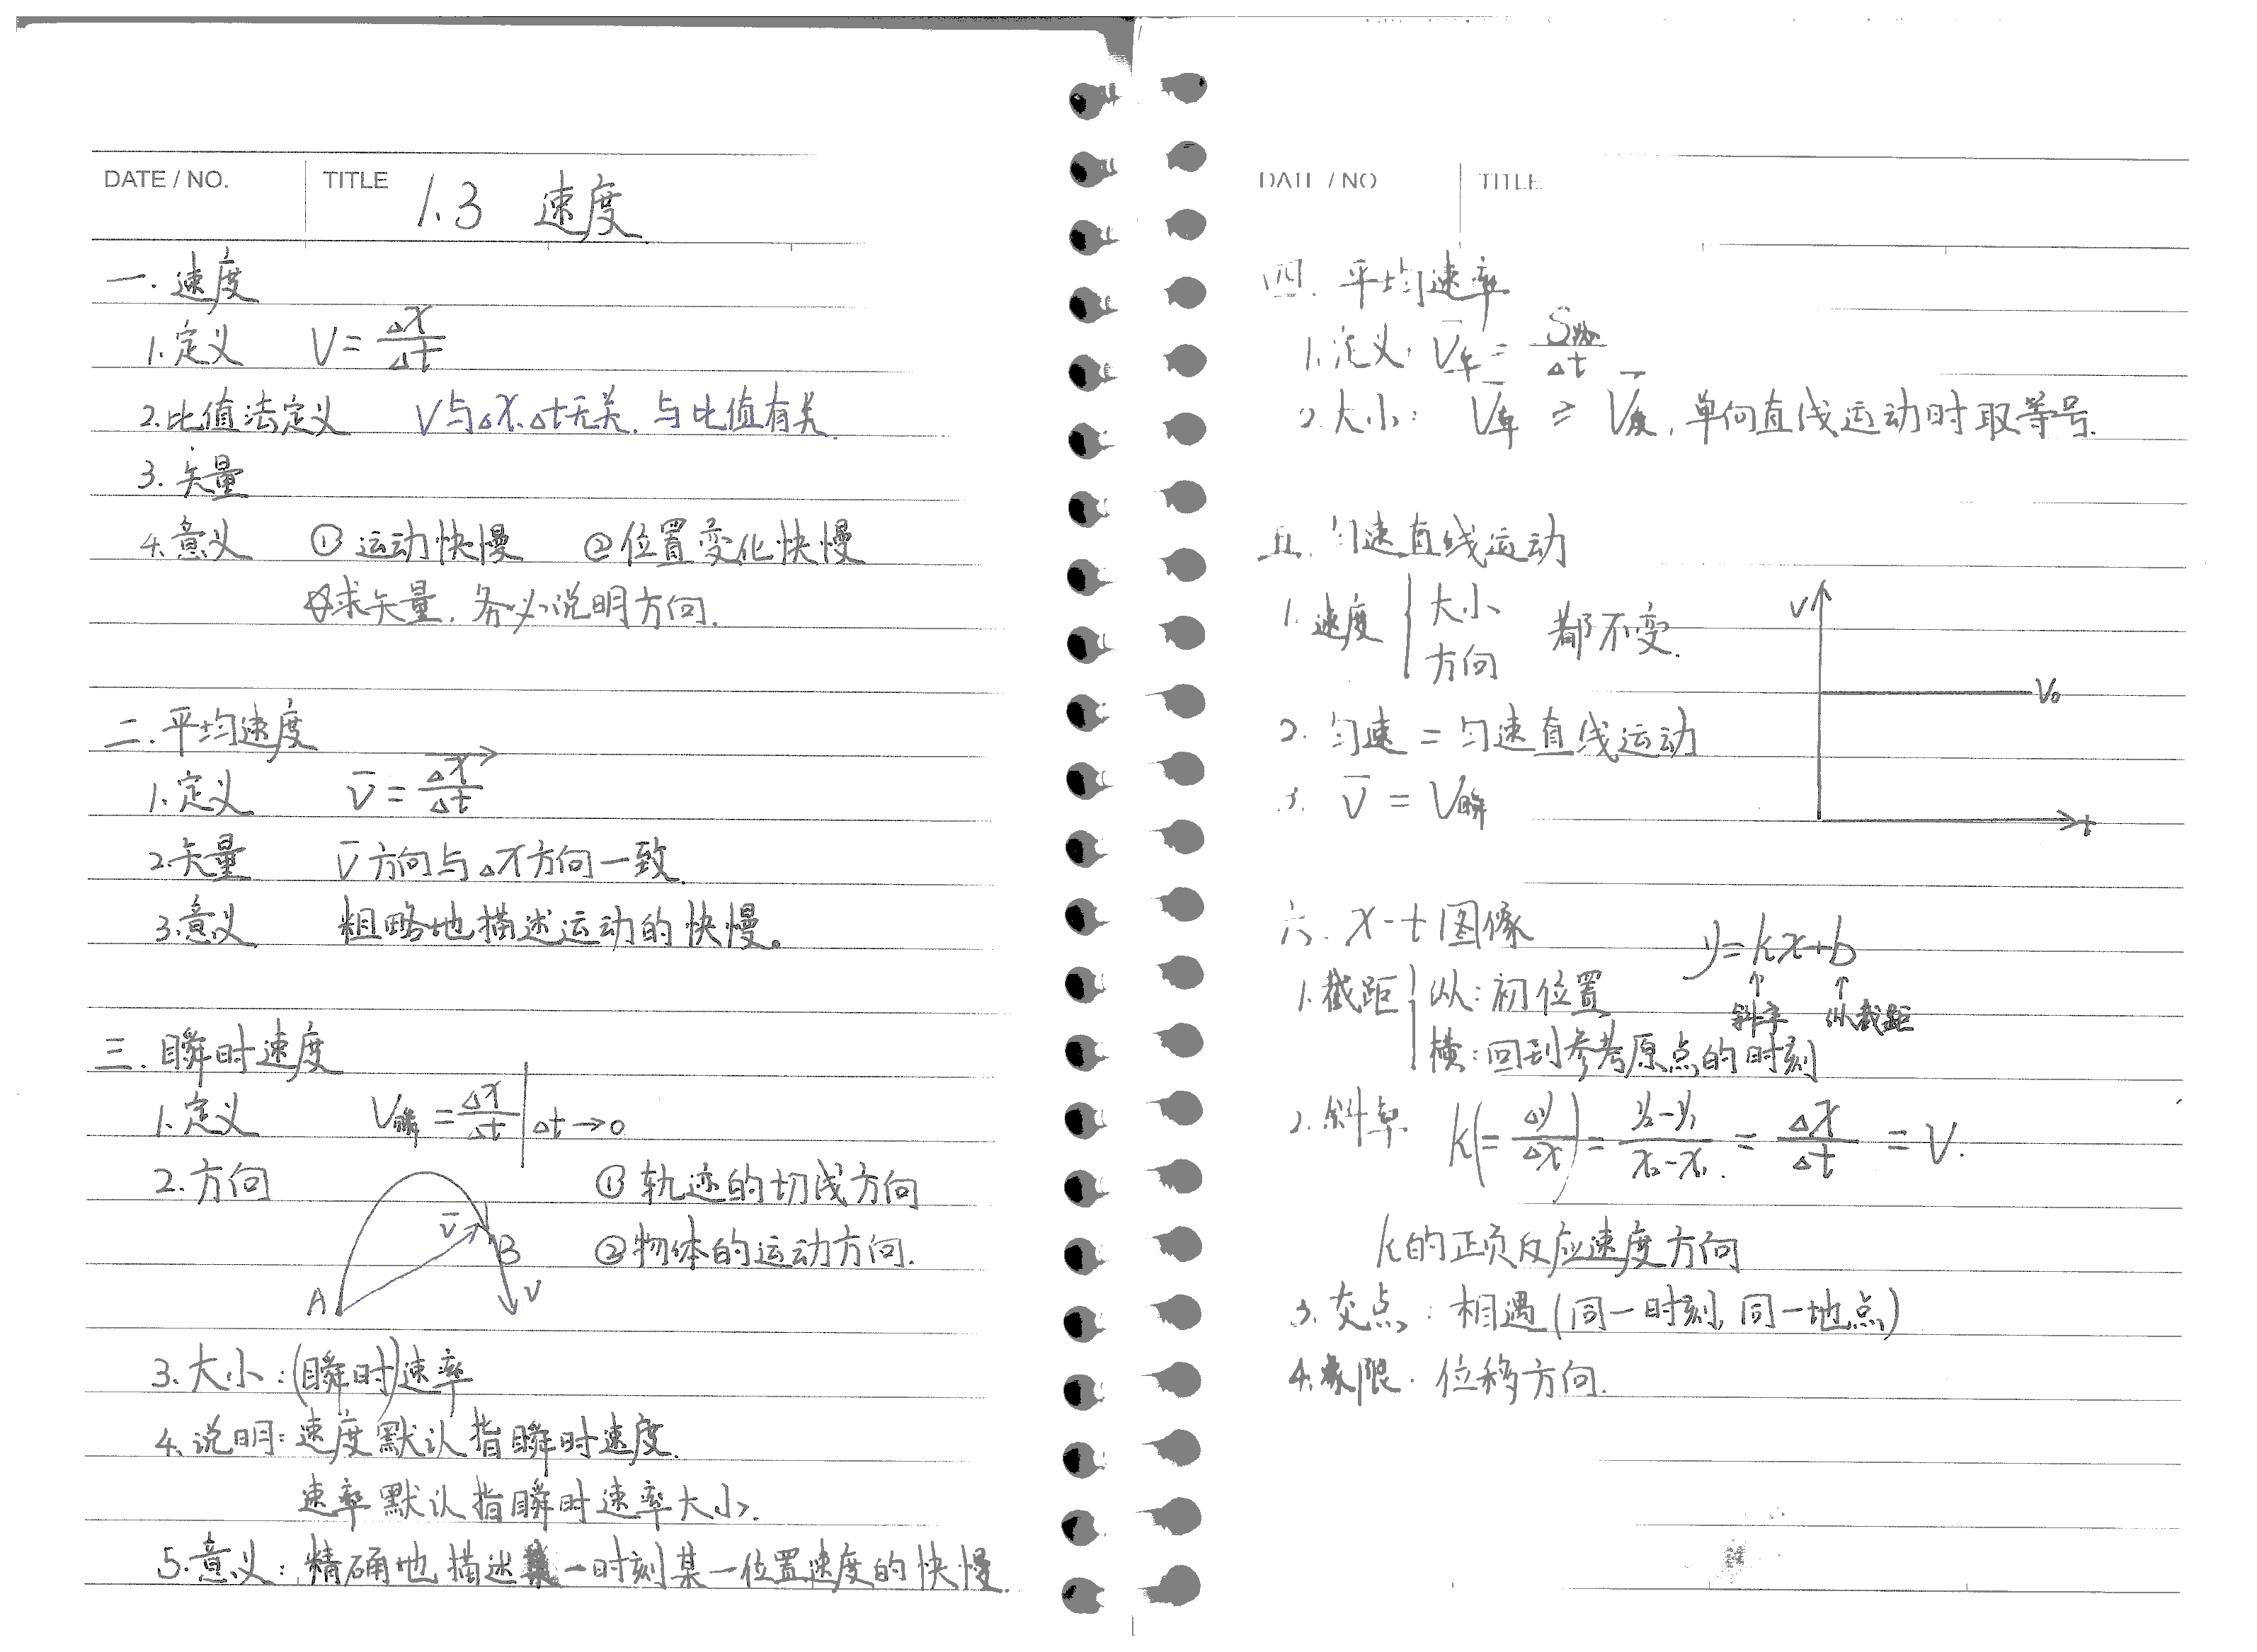 DATE / NO. TITLE 1.3 速度
一. 速度
1. 定义 V = Δx/Δt
2. 比值法定义 V与Δx、Δt无关. 与比值有关.
3. 矢量
4. 意义 ① 运动快慢 ② 位置变化快慢
☆求矢量, 务必说明方向.
二. 平均速度
1. 定义 v̄ = Δx/Δt
2. 矢量 v̄ 方向与Δx方向一致.
3. 意义 粗略地描述运动的快慢。
三. 瞬时速度
1. 定义 V瞬 = Δx/Δt | Δt→0
2. 方向 ① 轨迹的切线方向
v̄ B ② 物体的运动方向.
A v
3. 大小: (瞬时)速率
4. 说明: 速度默认指瞬时速度.
速率默认指瞬时速率大小.
5. 意义: 精确地描述某一时刻某一位置速度的快慢.
DATE / NO TITLE
四. 平均速率
1. 定义: V̄率 = S路/Δt
2. 大小: V̄率 ≥ V̄度, 单向直线运动时取等号.
五. 匀速直线运动
1. 速度 { 大小 方向 都不变.
V
V₀
t
2. 匀速 = 匀速直线运动
3. v̄ = V瞬
六. x-t图像
y = kx + b
↑斜率 ↑纵截距
1. 截距 { 纵: 初位置
横: 回到参考原点的时刻
2. 斜率 k(= Δy/Δx) = y₂-y₁/x₂-x₁ = Δx/Δt = V.
k的正负反应速度方向
3. 交点: 相遇(同一时刻, 同一地点)
4. 象限. 位移方向.